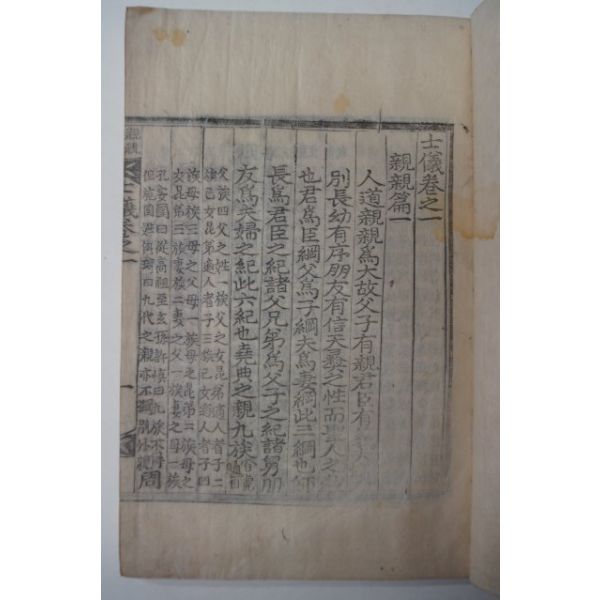 士儀卷之一
親親篇一
人道親親爲大故父子有親君臣有
別長幼有序朋友有信天彛之性而聖人之
也君爲臣綱父爲子綱夫爲妻綱此三綱也師
長爲君臣之紀諸父兄弟爲父子之紀諸舅朋
友爲夫婦之紀此六紀也堯典之親九族
父族四父之姓一族父之女昆弟適人者子二
族己女昆弟適人者子三族己女適人者子四
族母族三母之父母一族母之昆弟二族母之
女昆弟三族妻族二妻之父一族妻之母一族
孔安國曰從高祖至玄孫許愼曰九族不得
但施同姓 九代之親亦不 別外親 周
士儀卷之一
一